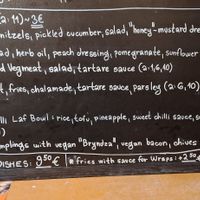 (a:11) ~ 3€
nitzels, pickled cucumber, salad, "honey"-mustard dre
ad, herb oil, peach dressing, pomegranate, sunflower
d Vegmeat, salad, tartare sauce (a:1,6,10)
fries, chalamade, tartare sauce, parsley (a:6,10)
Laf Bowl: rice, tofu, pineapple, sweet chilli sauce, s
mplings with vegan "Bryndza", vegan bacon, chives
DISHES: 9,50 € *fries with sauce for Wraps: +2,50 €